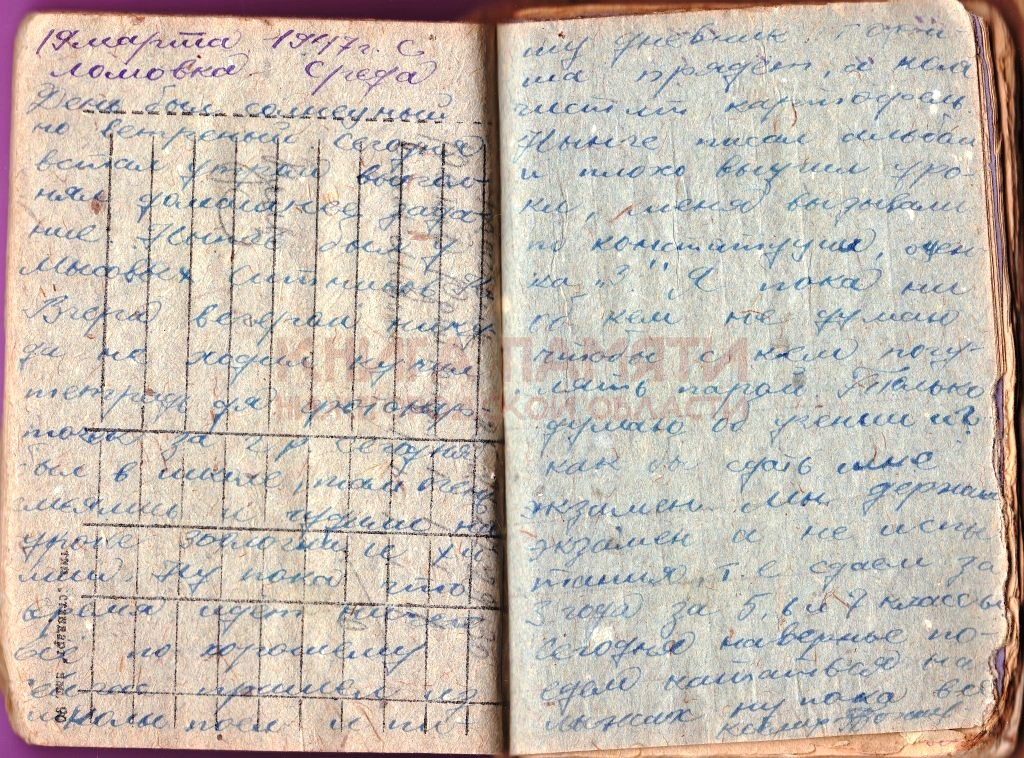 19 марта 1947 г. С
Ломовка Среда
День был солнечный
но ветреный Сегодня
встал утром выпол-
нял домашнее зада-
ние. Нынче был у
Вчера вечером нику-
да не ходил купил
тетрадь для фотокар-
точек за 2 р сегодня
был в школе, там очень
смеялись и чудили на
уроке зоологии и хи
мии Ну пока что
время идет ничего
все по хорошему
сейчас пришел из
школы поел и пи-
шу дневник
прядет, а Коля
чистит картофель.
Нынче писал альбом
и плохо выучил уро-
ки, меня вызывали
по конституции, оцен
ка "3". Я пока ни
о кем не думаю
чтобы с кем погу-
лять парой Только
думаю об учении и
как бы сдать мне
экзамен. Мы держим
экзамен а не испы
тания, т.е сдаем за
3 года за 5 6 и 7 классы
Сегодня наверное по-
едем кататься на
лыжах ну пока все
КНИГА ПАМЯТИ
ОБЛАСТИ